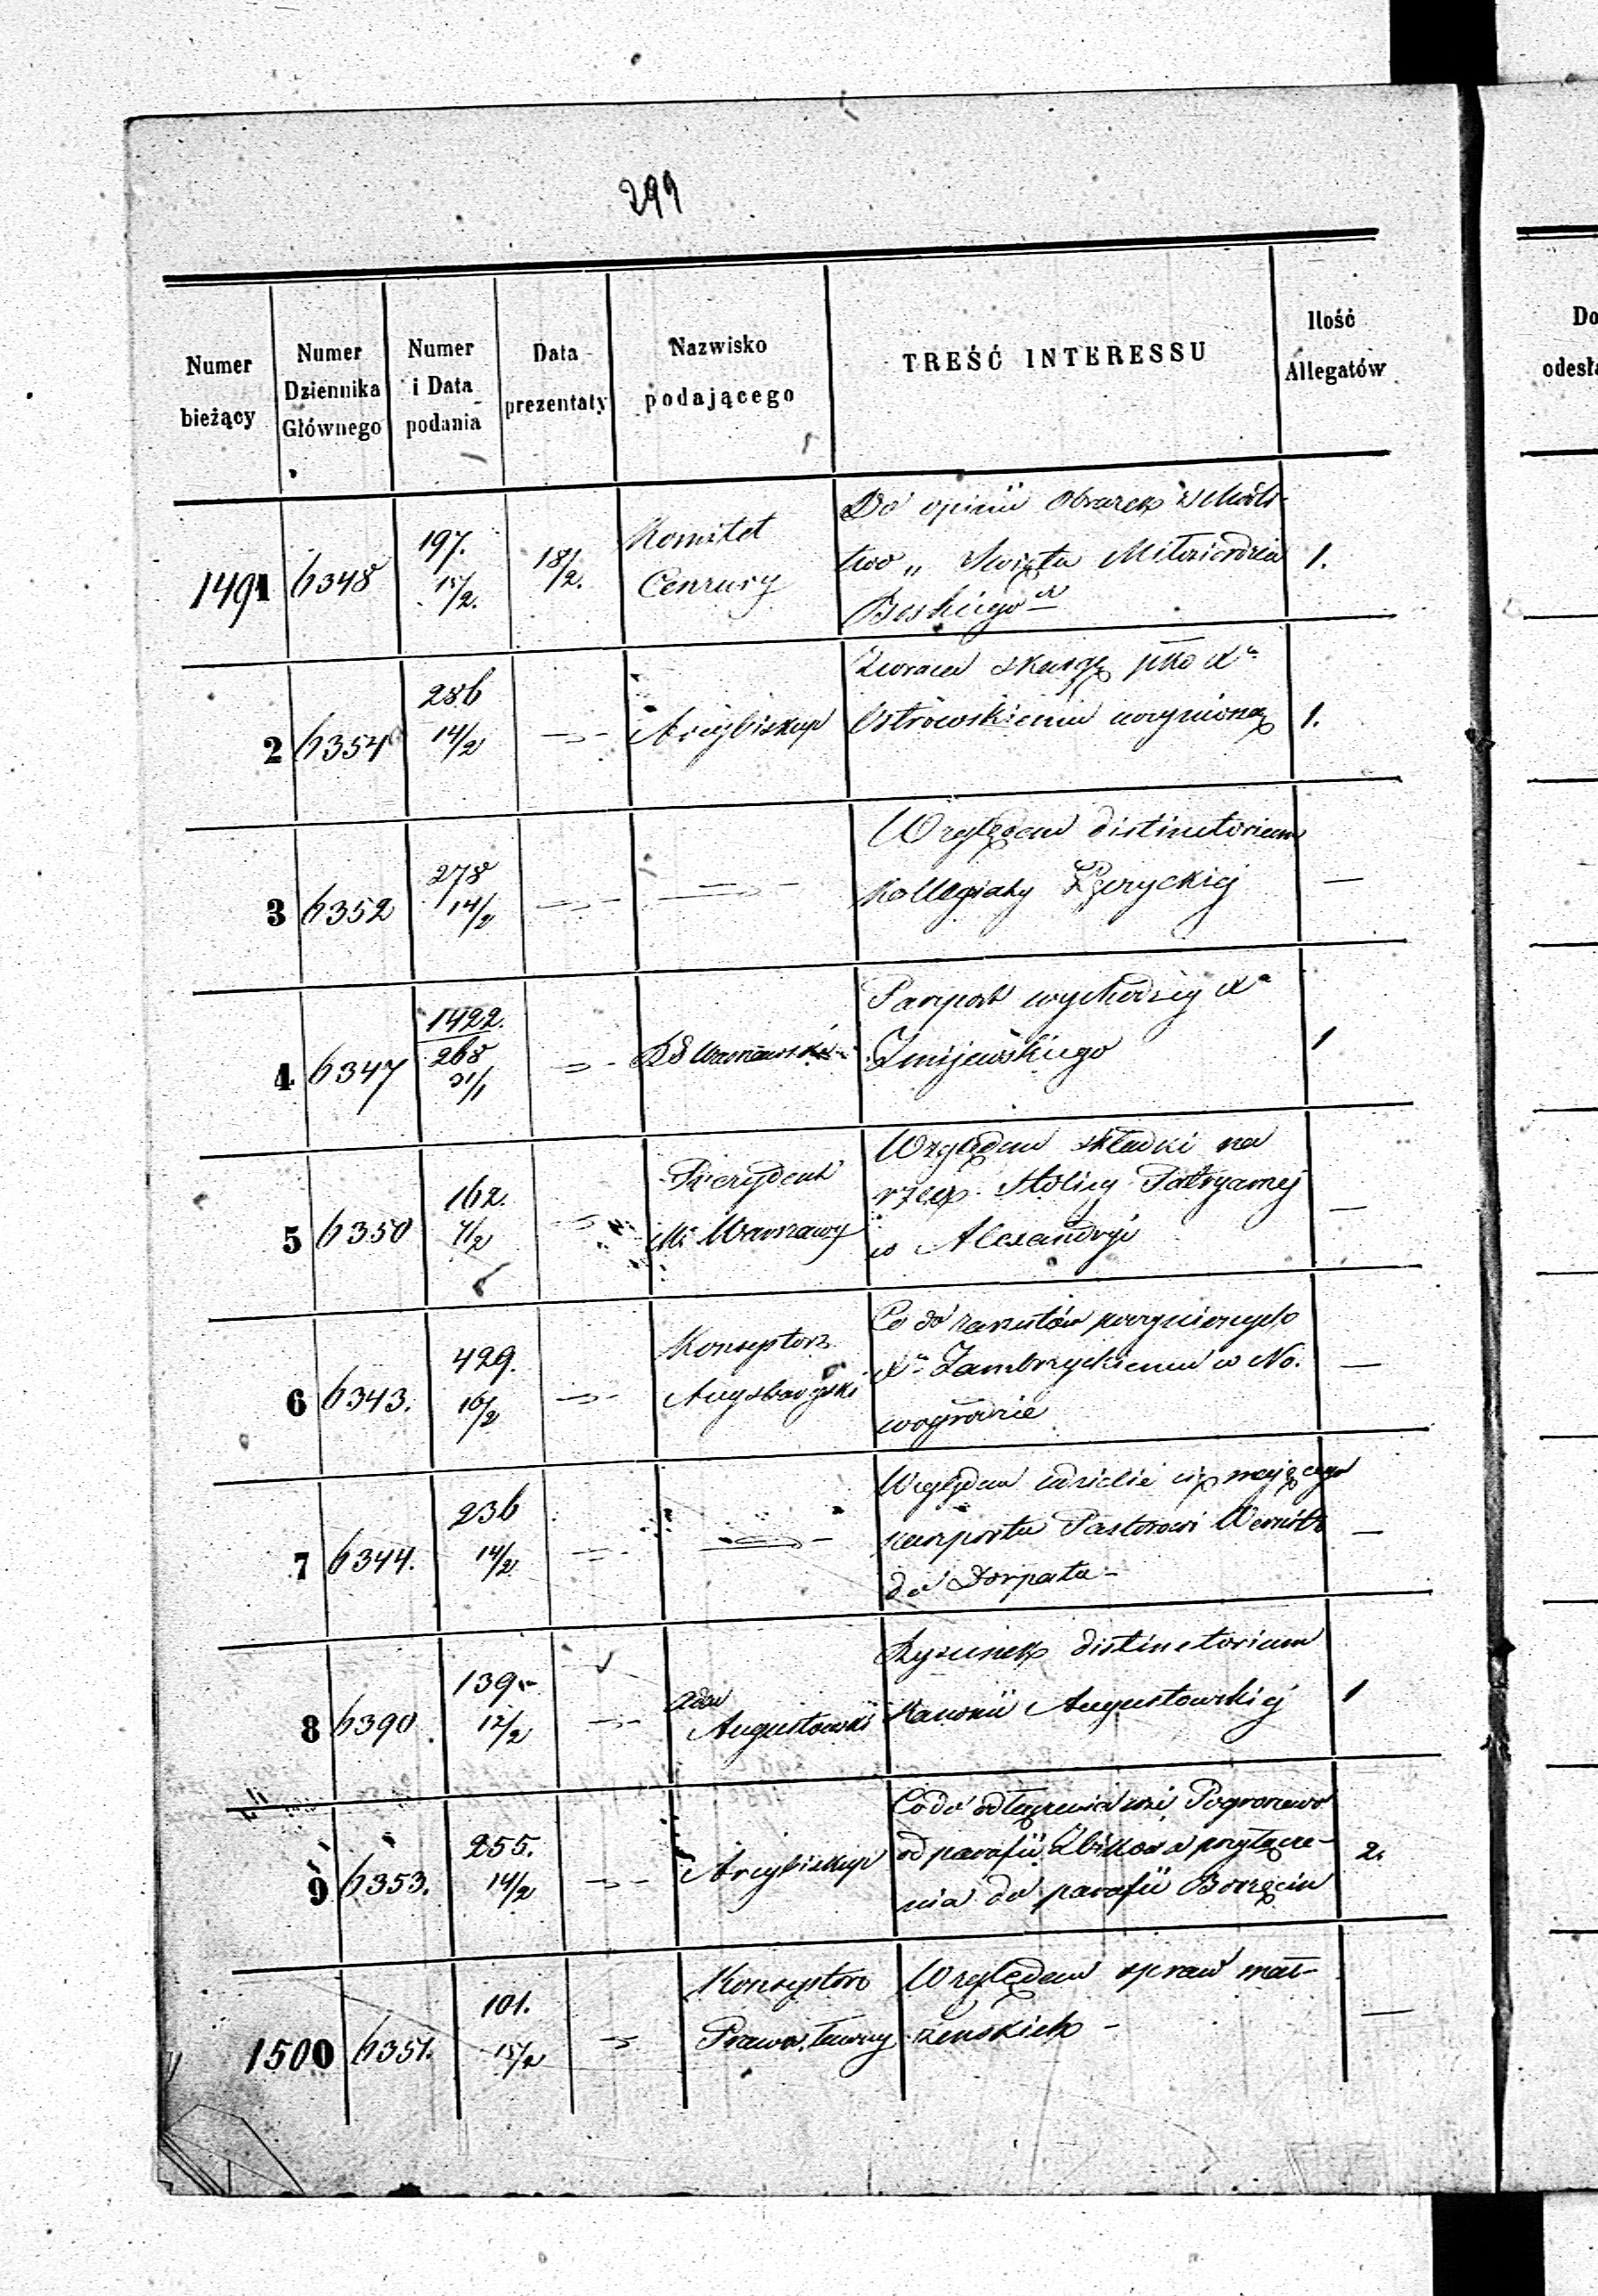 299
Numer bieżący | Numer Dziennika Głównego | Numer i Data podania | Data prezentaty | Nazwisko podającego | TREŚĆ INTERESSU | Ilość Allegatów | Do odesła
1491 | 6348 | 197. 15/2. | 18/2. | Komitet Cenzury | Do opinii Obrazek
two „ Święta Miłosierdzia | 1.
Boskiego"
2 | 6354 | 286 14/2 | Arcybiskup | Zwraca skargę ptko Xu
Ostrowskiemu uczynioną | 1.
3 | 6352 | 278 14/2 | Względem distinctorium
Kollegiaty Łęczyckiej | —
4 | 6347 | 1422. 268 31/1 | Warszawski | Paszport wychodzcy Xa
Żmijewskiego | 1
5 | 6350 | 162. 7/2 | Prezydent Mi Warszawy | Względem składki na
rzecz Stolicy Patryarszej
w Alexandryi | —
6 | 6343. | 429. 16/2 | Konsystorz Augsburgski | Co do zarzutów poczynionych
Xu Zambrzyckiemu w No.
wogrodzie | —
7 | 6344. | 236 14/2 | Względem udzielić się mającego
paszportu Pastorowi
do Dorpata — | —
8 | 6390. | 139. 12/2 | Adm Augustowski | Rysunek distinctorium
Kanonii Augustowskiej | 1
9 | 6353. | 255. 14/2 | Arcybiskup | Co do odłączenia wsi Pogroszewo
od parafii Żbikow a przyłącze-
nia do parafii Borzęcin | 2.
1500 | 6351. | 101. 15/2 | Konsystorz Prawosławny | Względem spraw mał-
żeńskich — | —